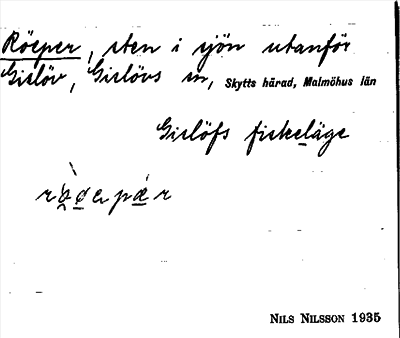 Röeper, sten i sjön utanför
Gislöv, Gislövs sn, Skytts härad, Malmöhus län
Gislöfs fiskeläge
Nils Nilsson 1935